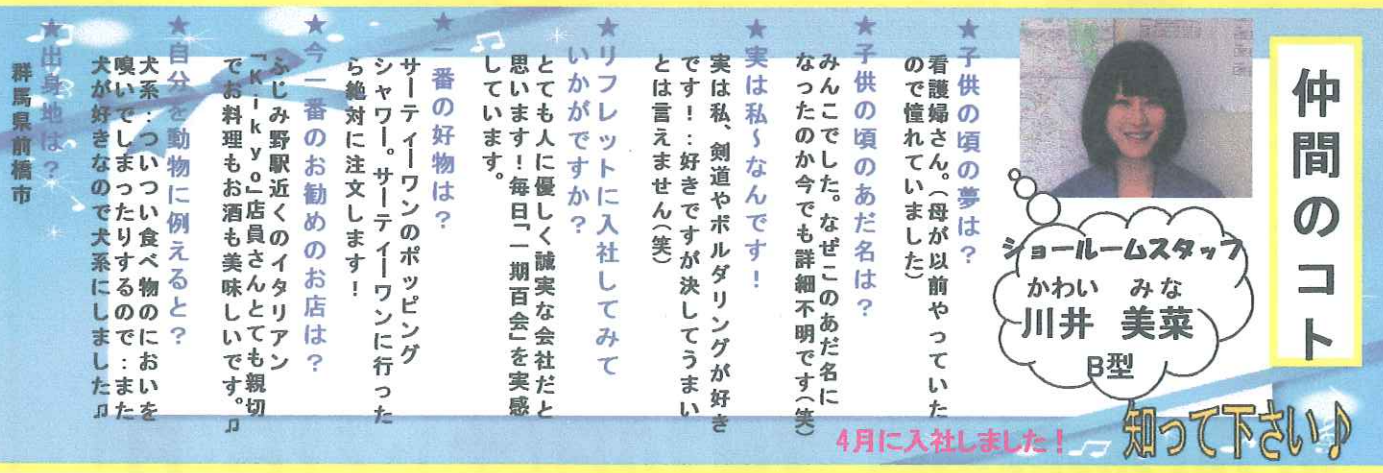 仲間のコト
知って下さい♪
4月に入社しました！
ショールームスタッフ
かわい　みな
川井　美菜
B型
★子供の頃の夢は？
看護婦さん。（母が以前やっていた
ので憧れていました）
★子供の頃のあだ名は？
みんこでした。なぜこのあだ名に
なったのか今でも詳細不明です（笑）
★実は私～なんです！
実は私、剣道やボルダリングが好き
です！‥好きですが決してうまい
とは言えません（笑）
★リフレットに入社してみて
いかがですか？
とても人に優しく誠実な会社だと
思います！毎日「一期百会」を実感
しています。
★一番の好物は？
サーティーワンのポッピング
シャワー。サーティーワンに行った
ら絶対に注文します！
★今一番のお勧めのお店は？
ふじみ野駅近くのイタリアン
「Kikyo」店員さんとても親切
でお料理もお酒も美味しいです。♫
★自分を動物に例えると？
犬系‥ついつい食べ物のにおいを
嗅いでしまったりするので‥また
犬が好きなので犬系にしました♫
★出身地は？
群馬県前橋市